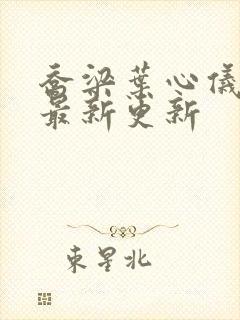 乔梁葉心儀
最新更新
東星北